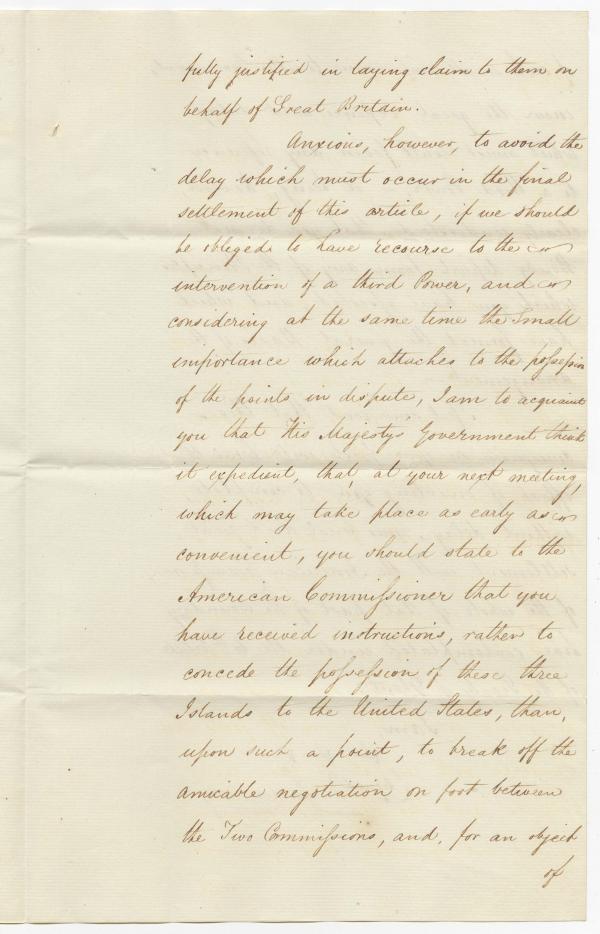 fully justified in laying claim to them on
behalf of Great Britain.
Anxious, however, to avoid the
delay which must occur in the final
settlement of this article, if we should
be obliged to have recourse to the
intervention of a third Power, and
considering at the same time the small
importance which attaches to the possession
of the points in dispute, I am to acquaint
you that His Majesty's Government think
it expedient, that, at your next meeting,
which may take place as early as
convenient, you should state to the
American Commissioner that you
have received instructions, rather to
concede the possession of these three
Islands to the United States, than,
upon such a point, to break off the
amicable negotiation on foot between
the Two Commissions, and, for an object
of